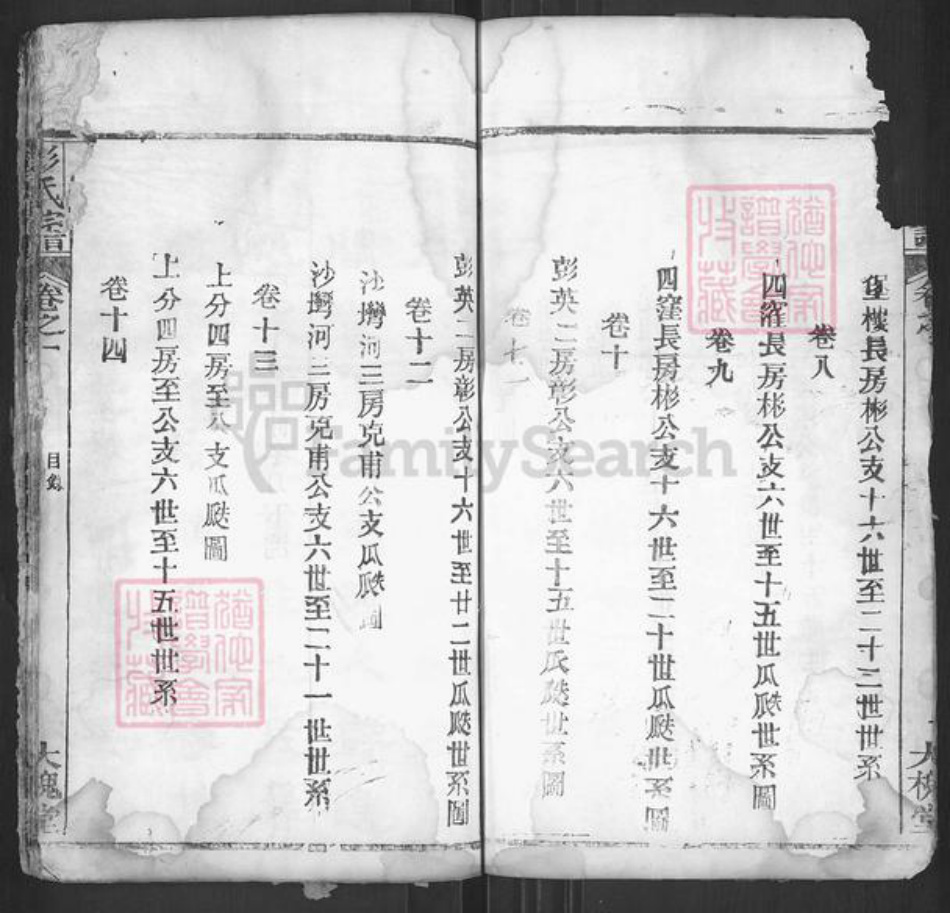 樓長房彬公支十六世至二十二世世系
卷八
四窪長房彬公支六世至十五世瓜瓞世系圖
卷九
四窪長房彬公支十六世至二十世瓜瓞世系圖
卷十
彭英二房彰公支六世至十五世瓜瓞世系圖
卷十一
彭英二房彰公支十六世至廿二世瓜瓞世系圖
卷十二
沙灣河三房克甫公支瓜瓞圖
沙灣河三房克甫公支六世至二十一世世系
卷十三
上分四房至公支瓜瓞圖
上分四房至公支六世至十五世世系
卷十四
彭氏宗譜
卷之一
目錄
大槐堂
大槐堂
FamilySearch